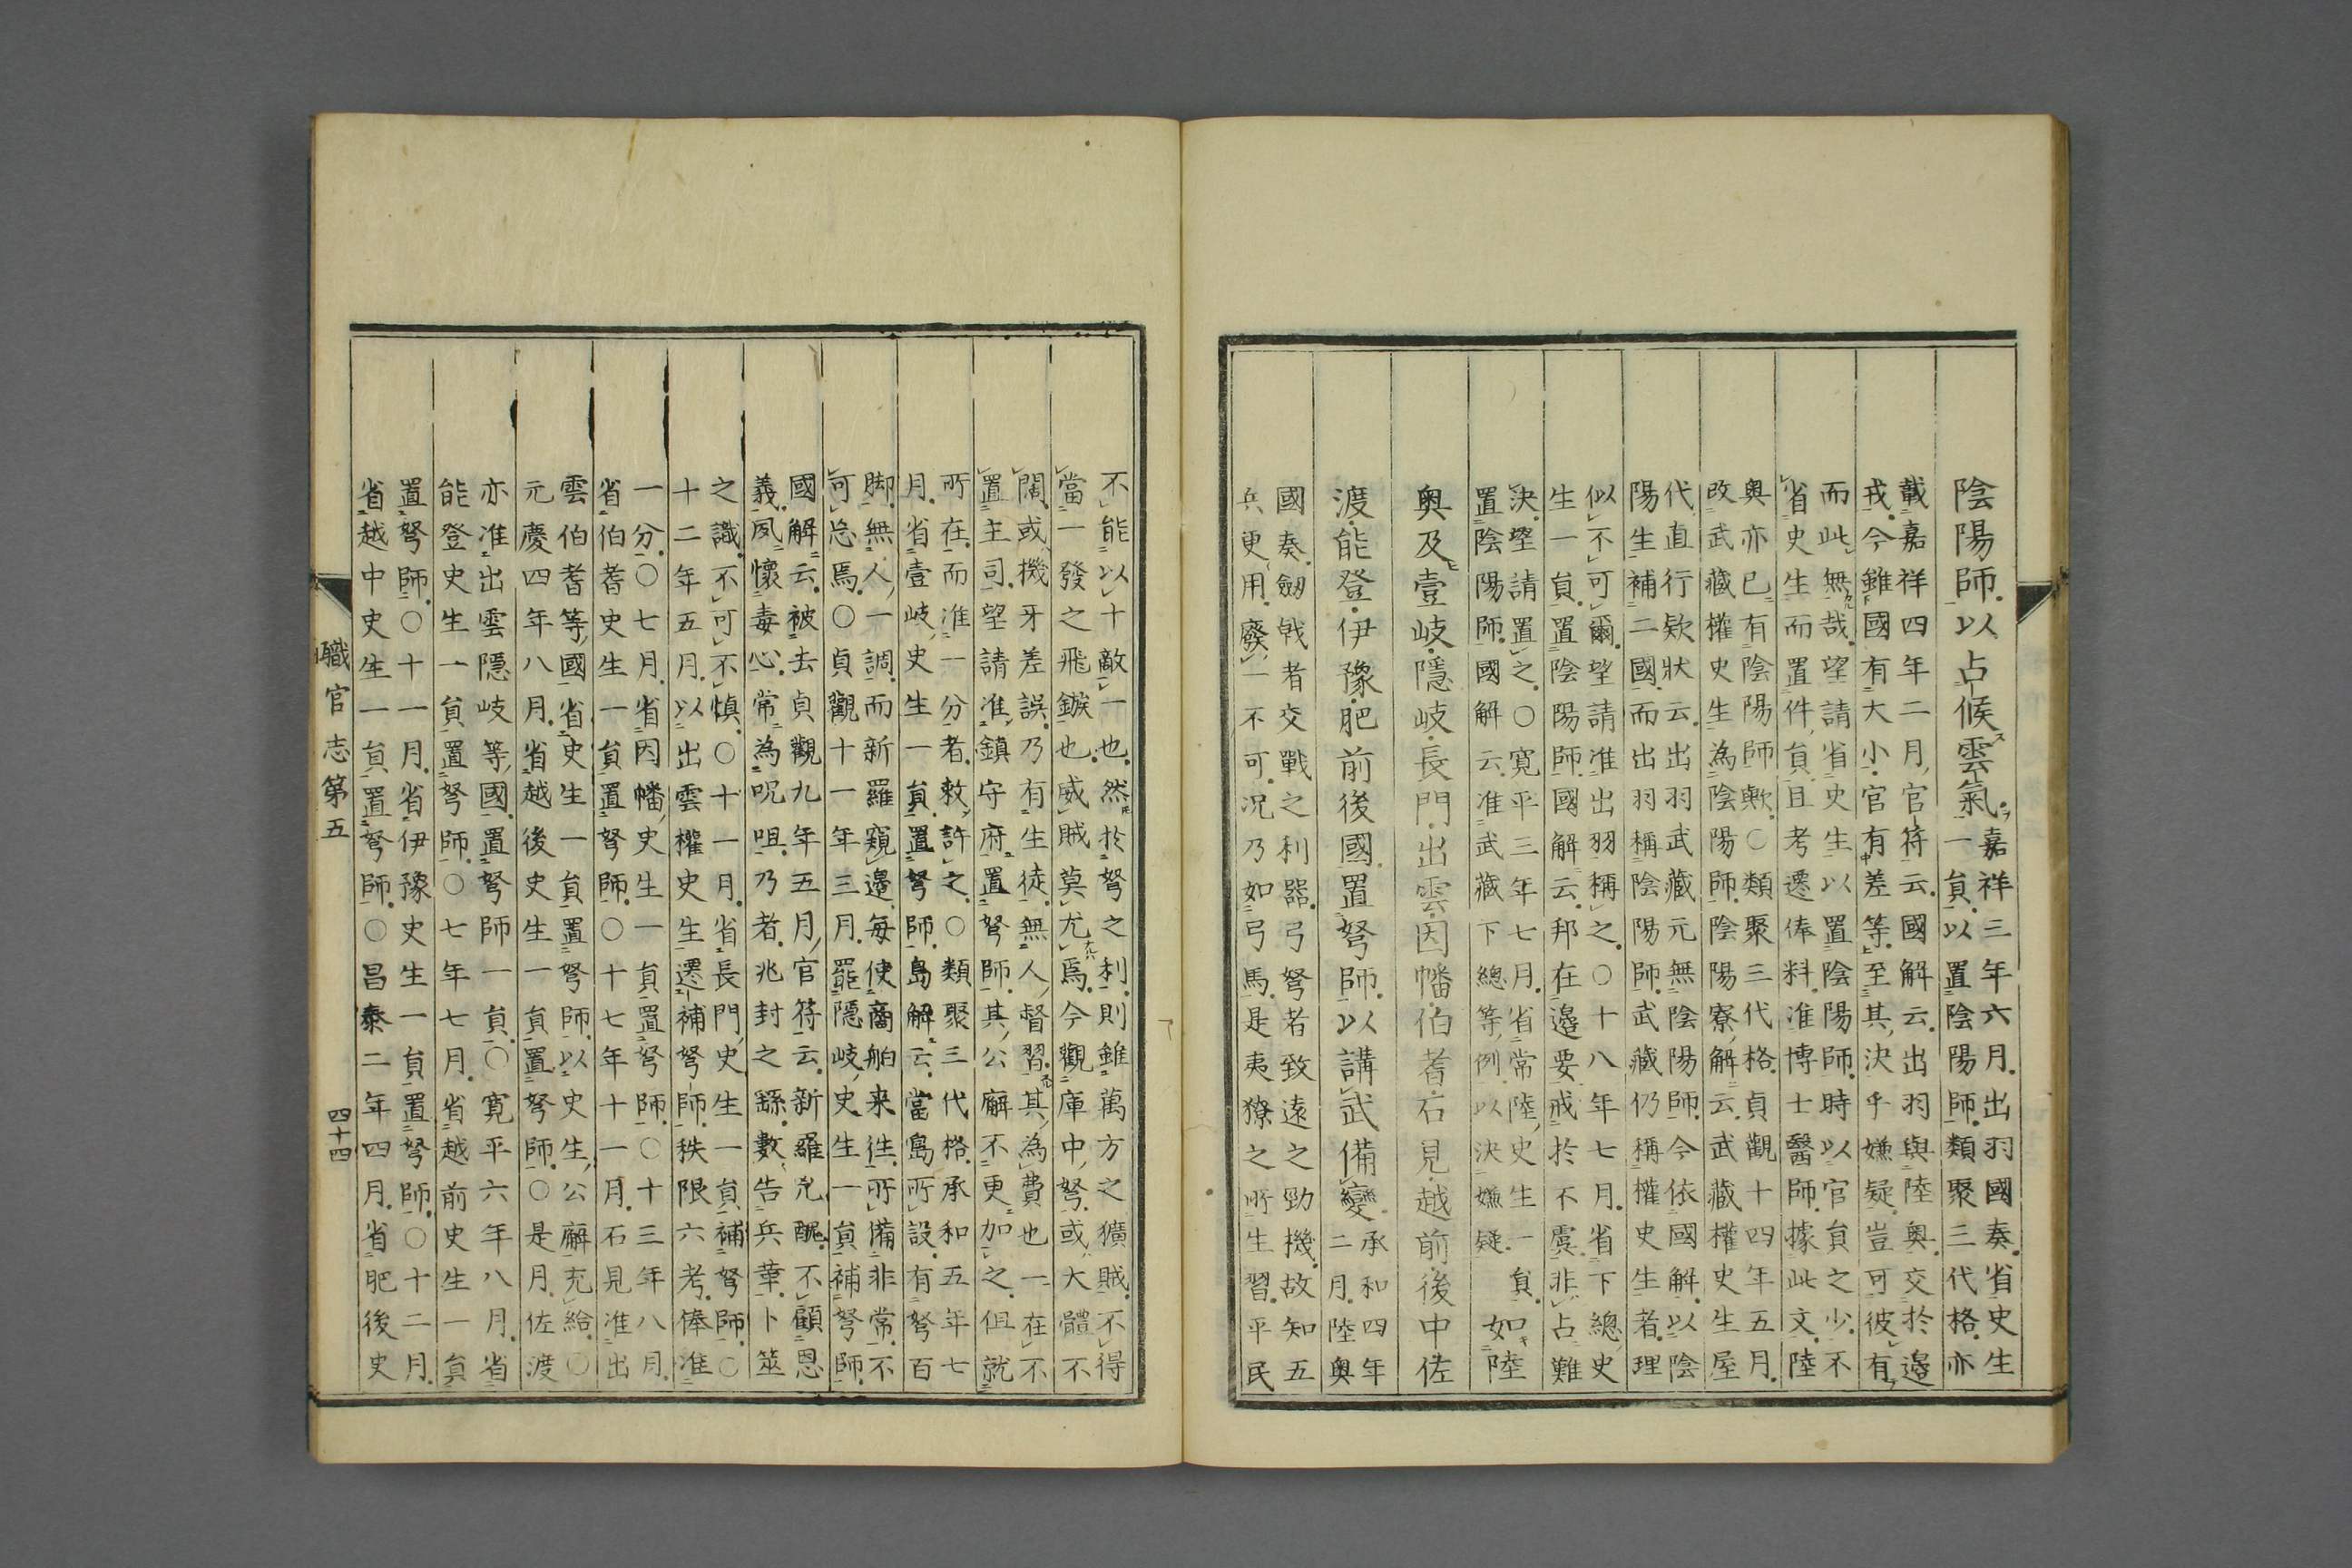 陰陽師以占候雲氣
嘉祥三年六月出羽國奏省史生
一員以置陰陽師類聚三代格亦
載嘉祥四年二月官符云國解云出羽與陸奥交於邊
戎今雖國有大小官有差等至其決乎嫌疑豈可彼有
而此無哉望請省史生以置陰陽師時以官員之少不
省史生而置件員且考遷俸料准博士醫師據此文陸
奥亦已有陰陽師歟○類聚三代格貞觀十四年五月
改武藏權史生為陰陽師陰陽寮解云武藏權史生屋
代直行欵狀云出羽武藏元無陰陽師今依國解以陰
陽生補二國而出羽稱陰陽師武藏仍稱權史生者理
似不可爾望請准出羽稱之○十八年七月省下總史
生一員置陰陽師國解云邦在邊要戒於不虞非占難
決望請置之○寛平三年七月省常陸史生一員
置陰陽師國解云准武藏下總等例以決嫌疑
如陸
奥及壹岐隱岐長門出雲因幡伯耆石見越前後中佐
渡能登伊豫肥前後國置弩師以講武備變
承和四年
二月陸奥
國奏劔戟者交戰之利器弓弩者致遠之勁機故知五
兵更用廢一不可况乃如弓馬是夷獠之所生習平民
不能以十敵一也然於弩之利則雖萬方之獷賊不得
當一發之飛鏃也威賊莫尤焉今觀庫中弩或大體不
闊或機牙差誤乃有生徒無人督習其為費也一在不
置主司望請准鎮守府置弩師其公廨不更加之但就
所在而准一分者敕許之○類聚三代格承和五年七
月省壹岐史生一員置弩師島解云當島所設有弩百
脚無人一調而新羅窺邊每使商舶来往所備非常不
可怠焉○貞觀十一年三月罷隱岐史生一員補弩師
國解云被去貞觀九年五月官符云新羅兇醜不顧恩
義夙懷毒心常為呪咀乃者兆封之繇數告兵葦卜筮
之識不可不慎○十一月省長門史生一員補弩師○
十二年五月以出雲權史生遷補弩師秩限六考俸准
一分○七月省因幡史生一員置弩師○十三年八月
省伯耆史生一員置弩師○十七年十一月石見准出
雲伯耆等國省史生一員置弩師以史生公廨充給○
元慶四年八月省越後史生一員置弩師○是月佐渡
亦准出雲隱岐等國置弩師一員○寛平六年八月省
能登史生一員置弩師○七年七月省越前史生一員
置弩師○十一月省伊豫史生一員置弩師○十二月
省越中史生一員置弩師○昌泰二年四月省肥後史
職官志第五
四十四